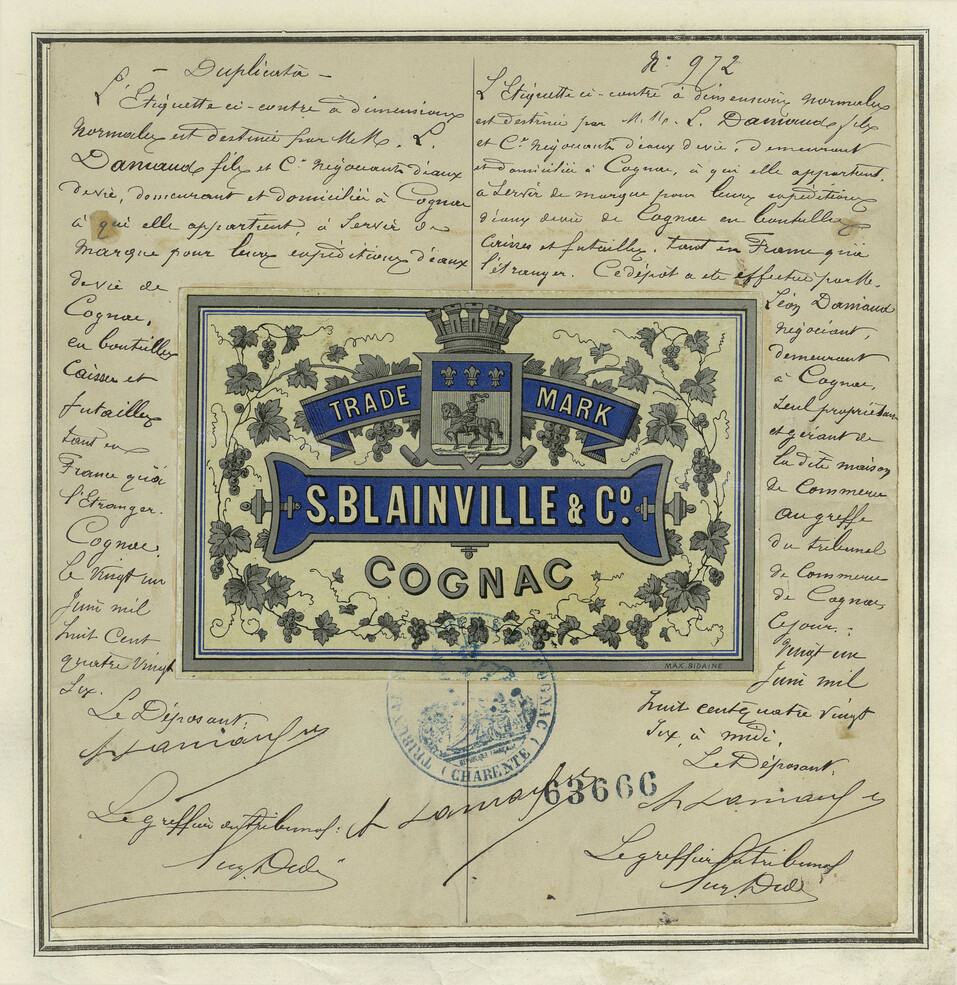 – Duplicata –
L'Etiquette ci-contre à dimensions
normales est destinée par M.M. L.
Damiaud fils et Cie négociants d'eaux
de vie, demeurant et domiciliés à Cognac
à qui elle appartient, à servir de
marque pour leurs expéditions d'eaux
de vie de
Cognac,
en bouteilles
Caisses et
futailles
tant en
France qu'à
l'Etranger.
Cognac
le vingt un
Juin mil
huit Cent
quatre Vingt
Six.
Le Déposant,
Le greffier du tribunal:
N° 972
L'Etiquette ci-contre à dimensions normales
est destinée par M.M. L. Damiaud fils
et Cie négociants d'eaux de vie, demeurant
et domiciliés à Cognac, à qui elle appartient,
à servir de marque pour leurs expéditions
d'eaux de vie de Cognac en bouteilles
Caisses et futailles, tant en France qu'à
l'étranger. Ce dépôt a été effectué par M.
Léon Damiaud
négociant,
demeurant
à Cognac,
Seul propriétaire
et gérant de
la dite maison
de Commerce
au greffe
du tribunal
de Commerce
de Cognac
Ce jour
Vingt un
Juin mil
huit cent quatre vingt
Six, à midi,
Le Déposant,
Le greffier du tribunal
TRADE MARK
S. BLAINVILLE & Co.
COGNAC
MAX. SIDAINE
COGNAC (CHARENTE)
63666